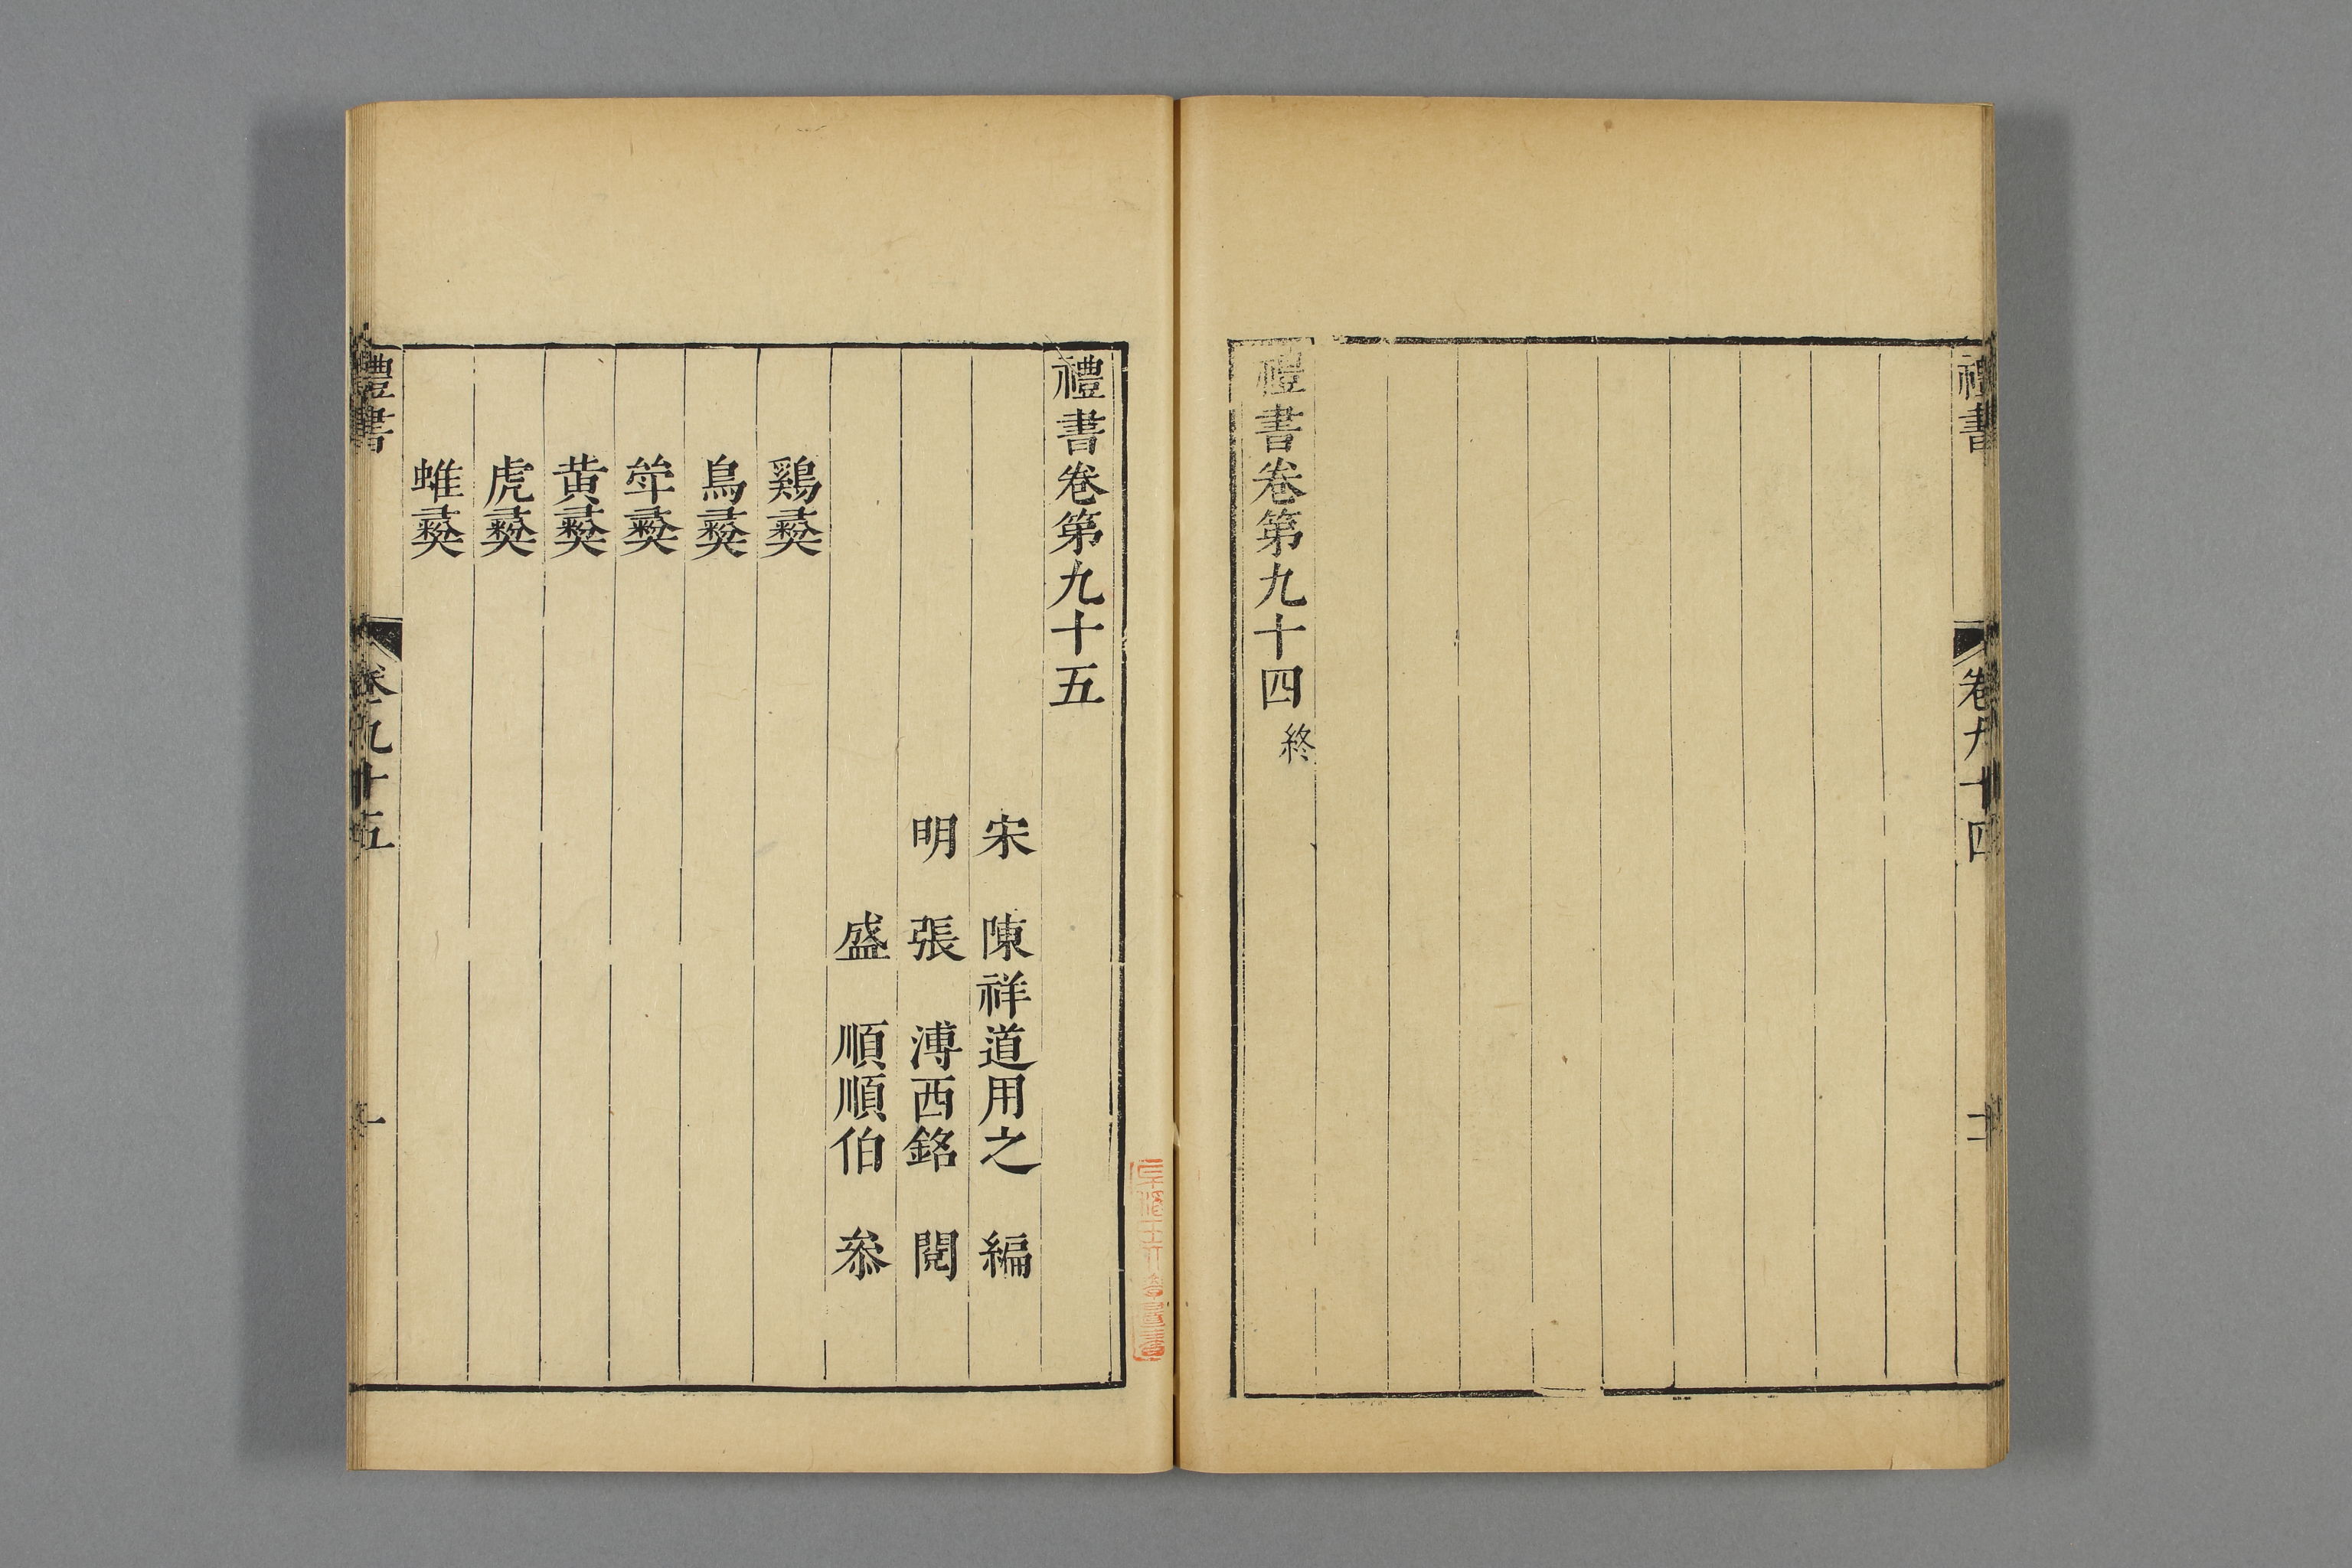 禮書
卷九十四
十一
禮書卷第九十四 終
禮書卷第九十五
宋 陳祥道用之 編
明 張 溥西銘 閱
盛 順順伯 叅
鷄彝
鳥彝
斝彝
黄彝
虎彝
蜼彝
禮書
卷九十五
一